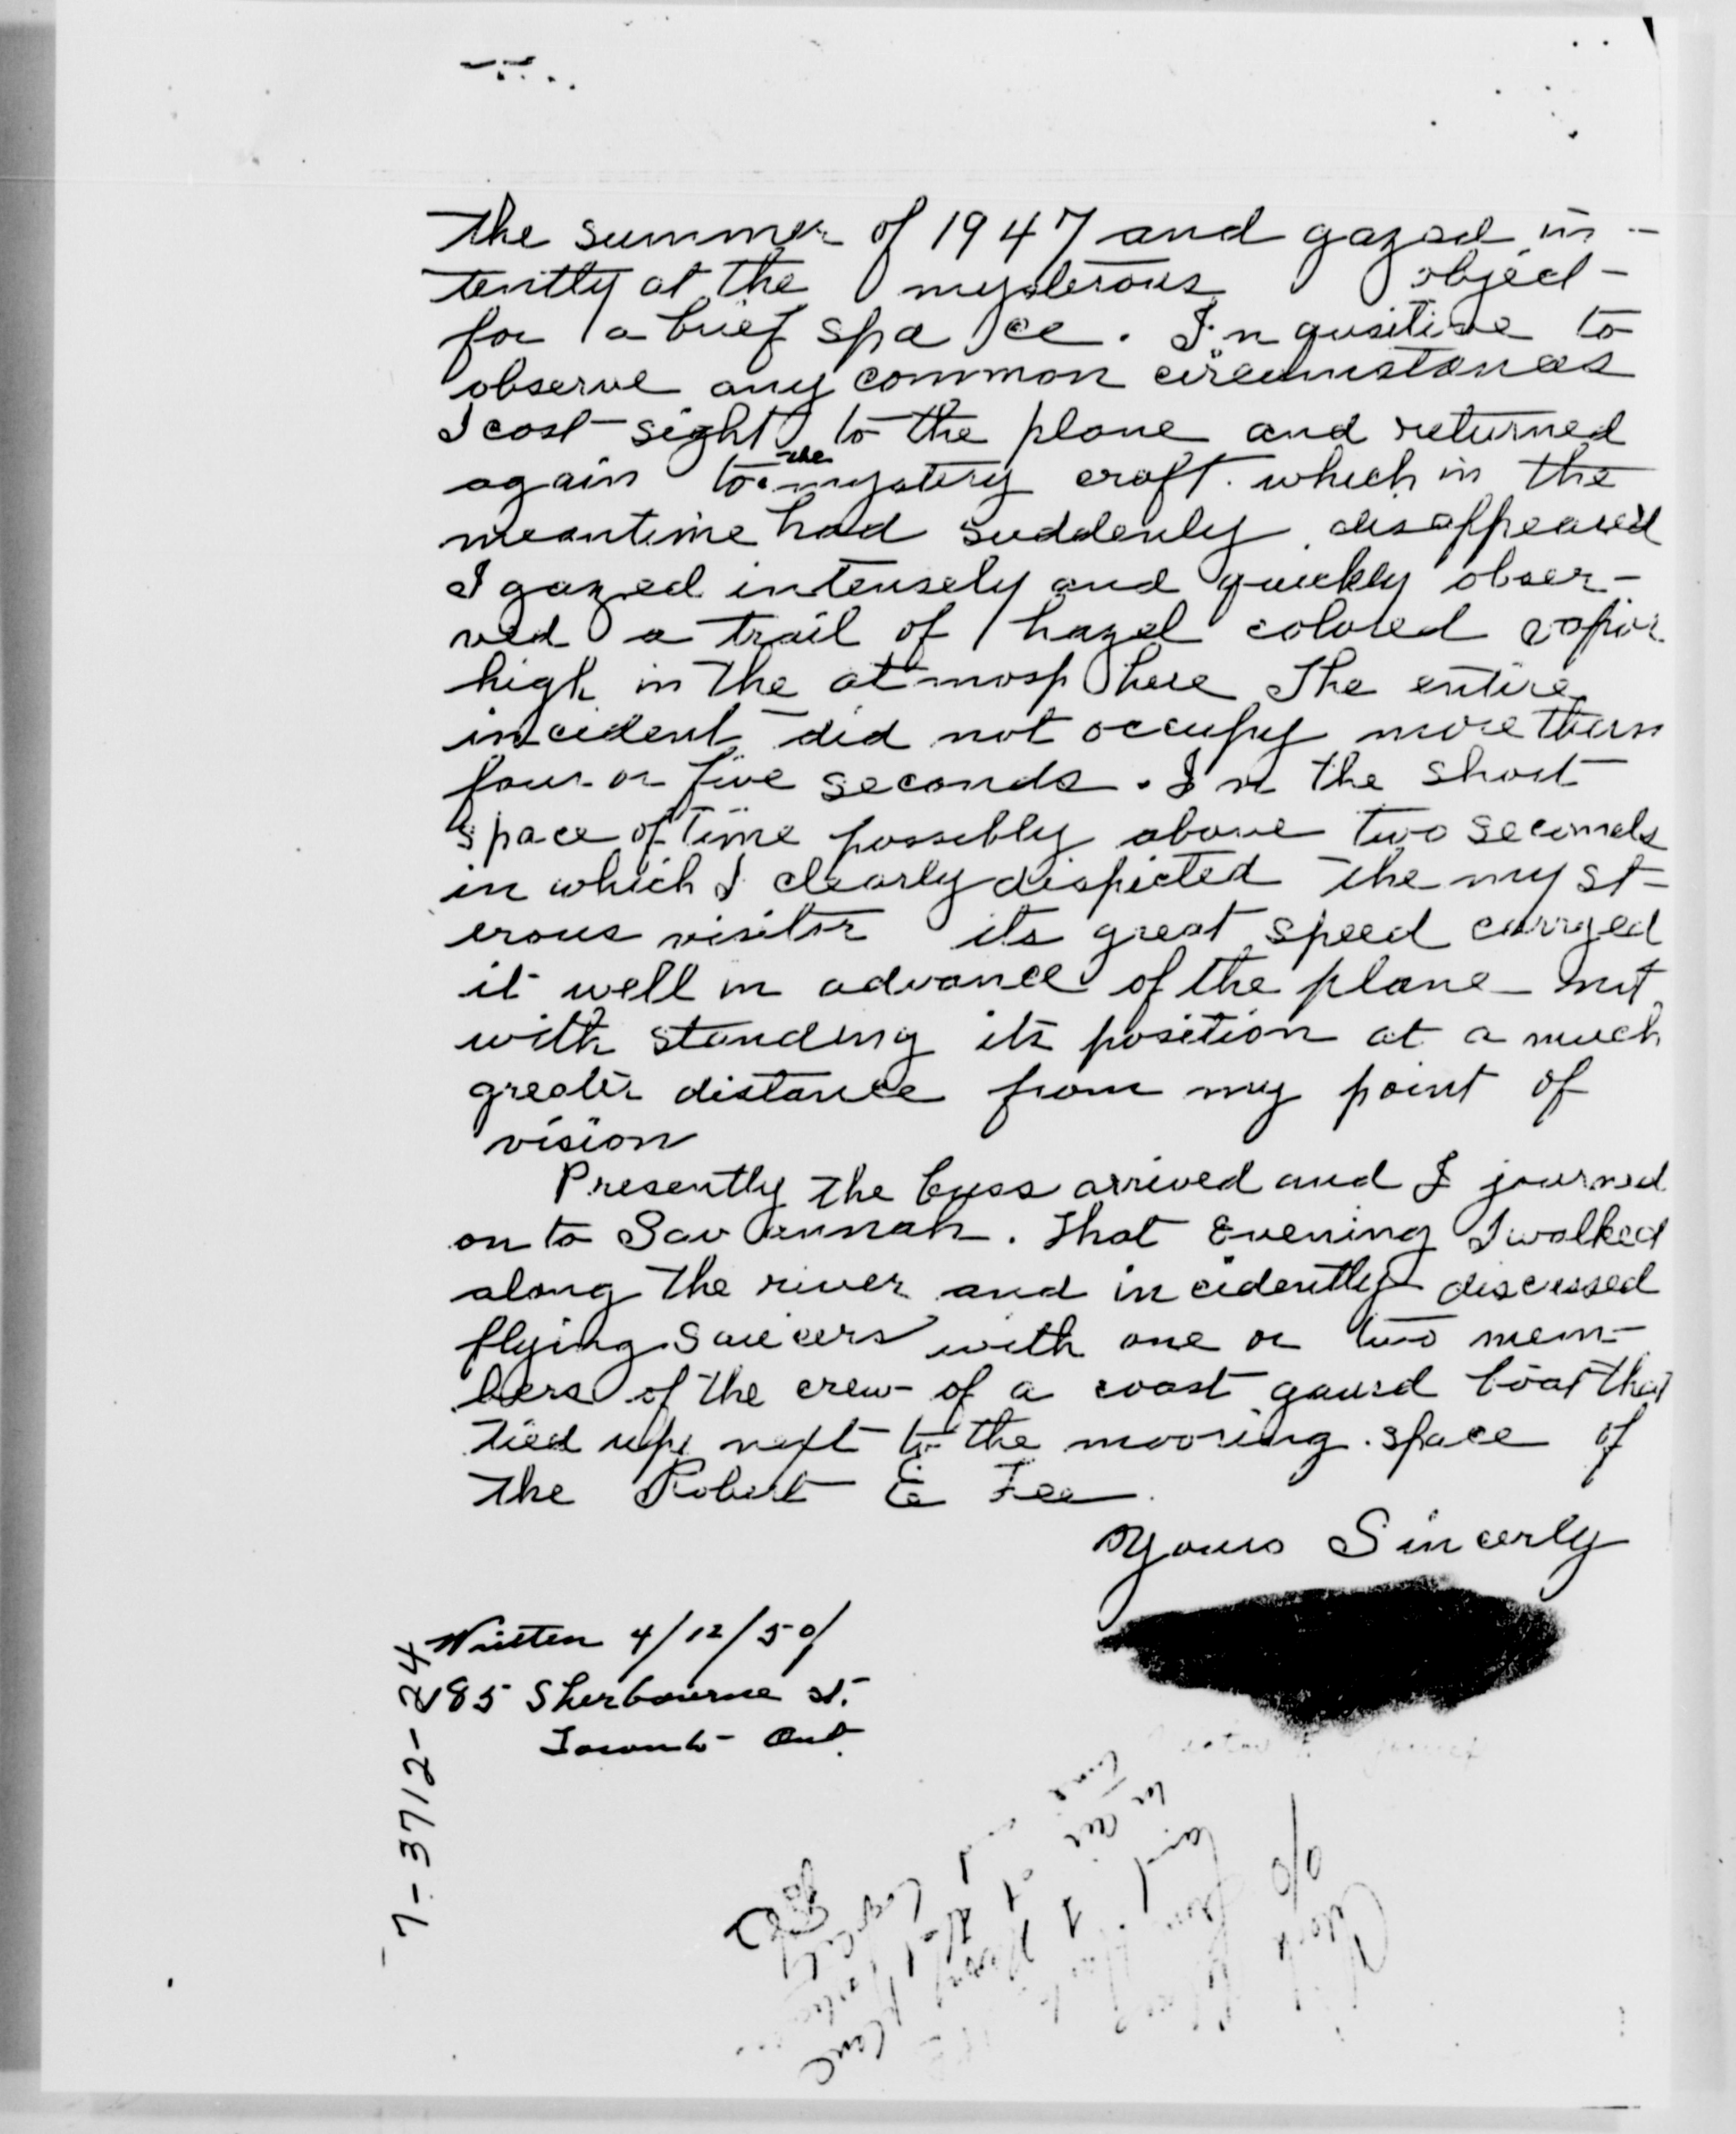 the summer of 1947 and gazed in-
tently at the mysterous object
for a brief space. Inqusitive to
observe any common circumstances
I cast sight to the plane and returned
again to the mystery craft which in the
meantime had suddenly disappeared
I gazed intensely and quickly obser-
ved a trail of hazel colored vapor
high in the atmosphere The entire
incident did not occupy more than
four or five seconds. In the short
space of time possibly above two seconds
in which I clearly dispicted the myst-
erous visitor its great speed carryed
it well in advance of the plane not
with standing its position at a much
greater distance from my point of
vision
Presently the buss arrived and I journed
on to Savannah. That evening I walked
along the river and incidently discussed
flying saucers with one or two mem-
bers of the crew of a coast gaurd boat that
tied up next to the mooring space of
the Robert E Lee.
Yours Sincerly
Written 4/12/50
285 Sherbourne St.
Toronto Ont
7-3712-24